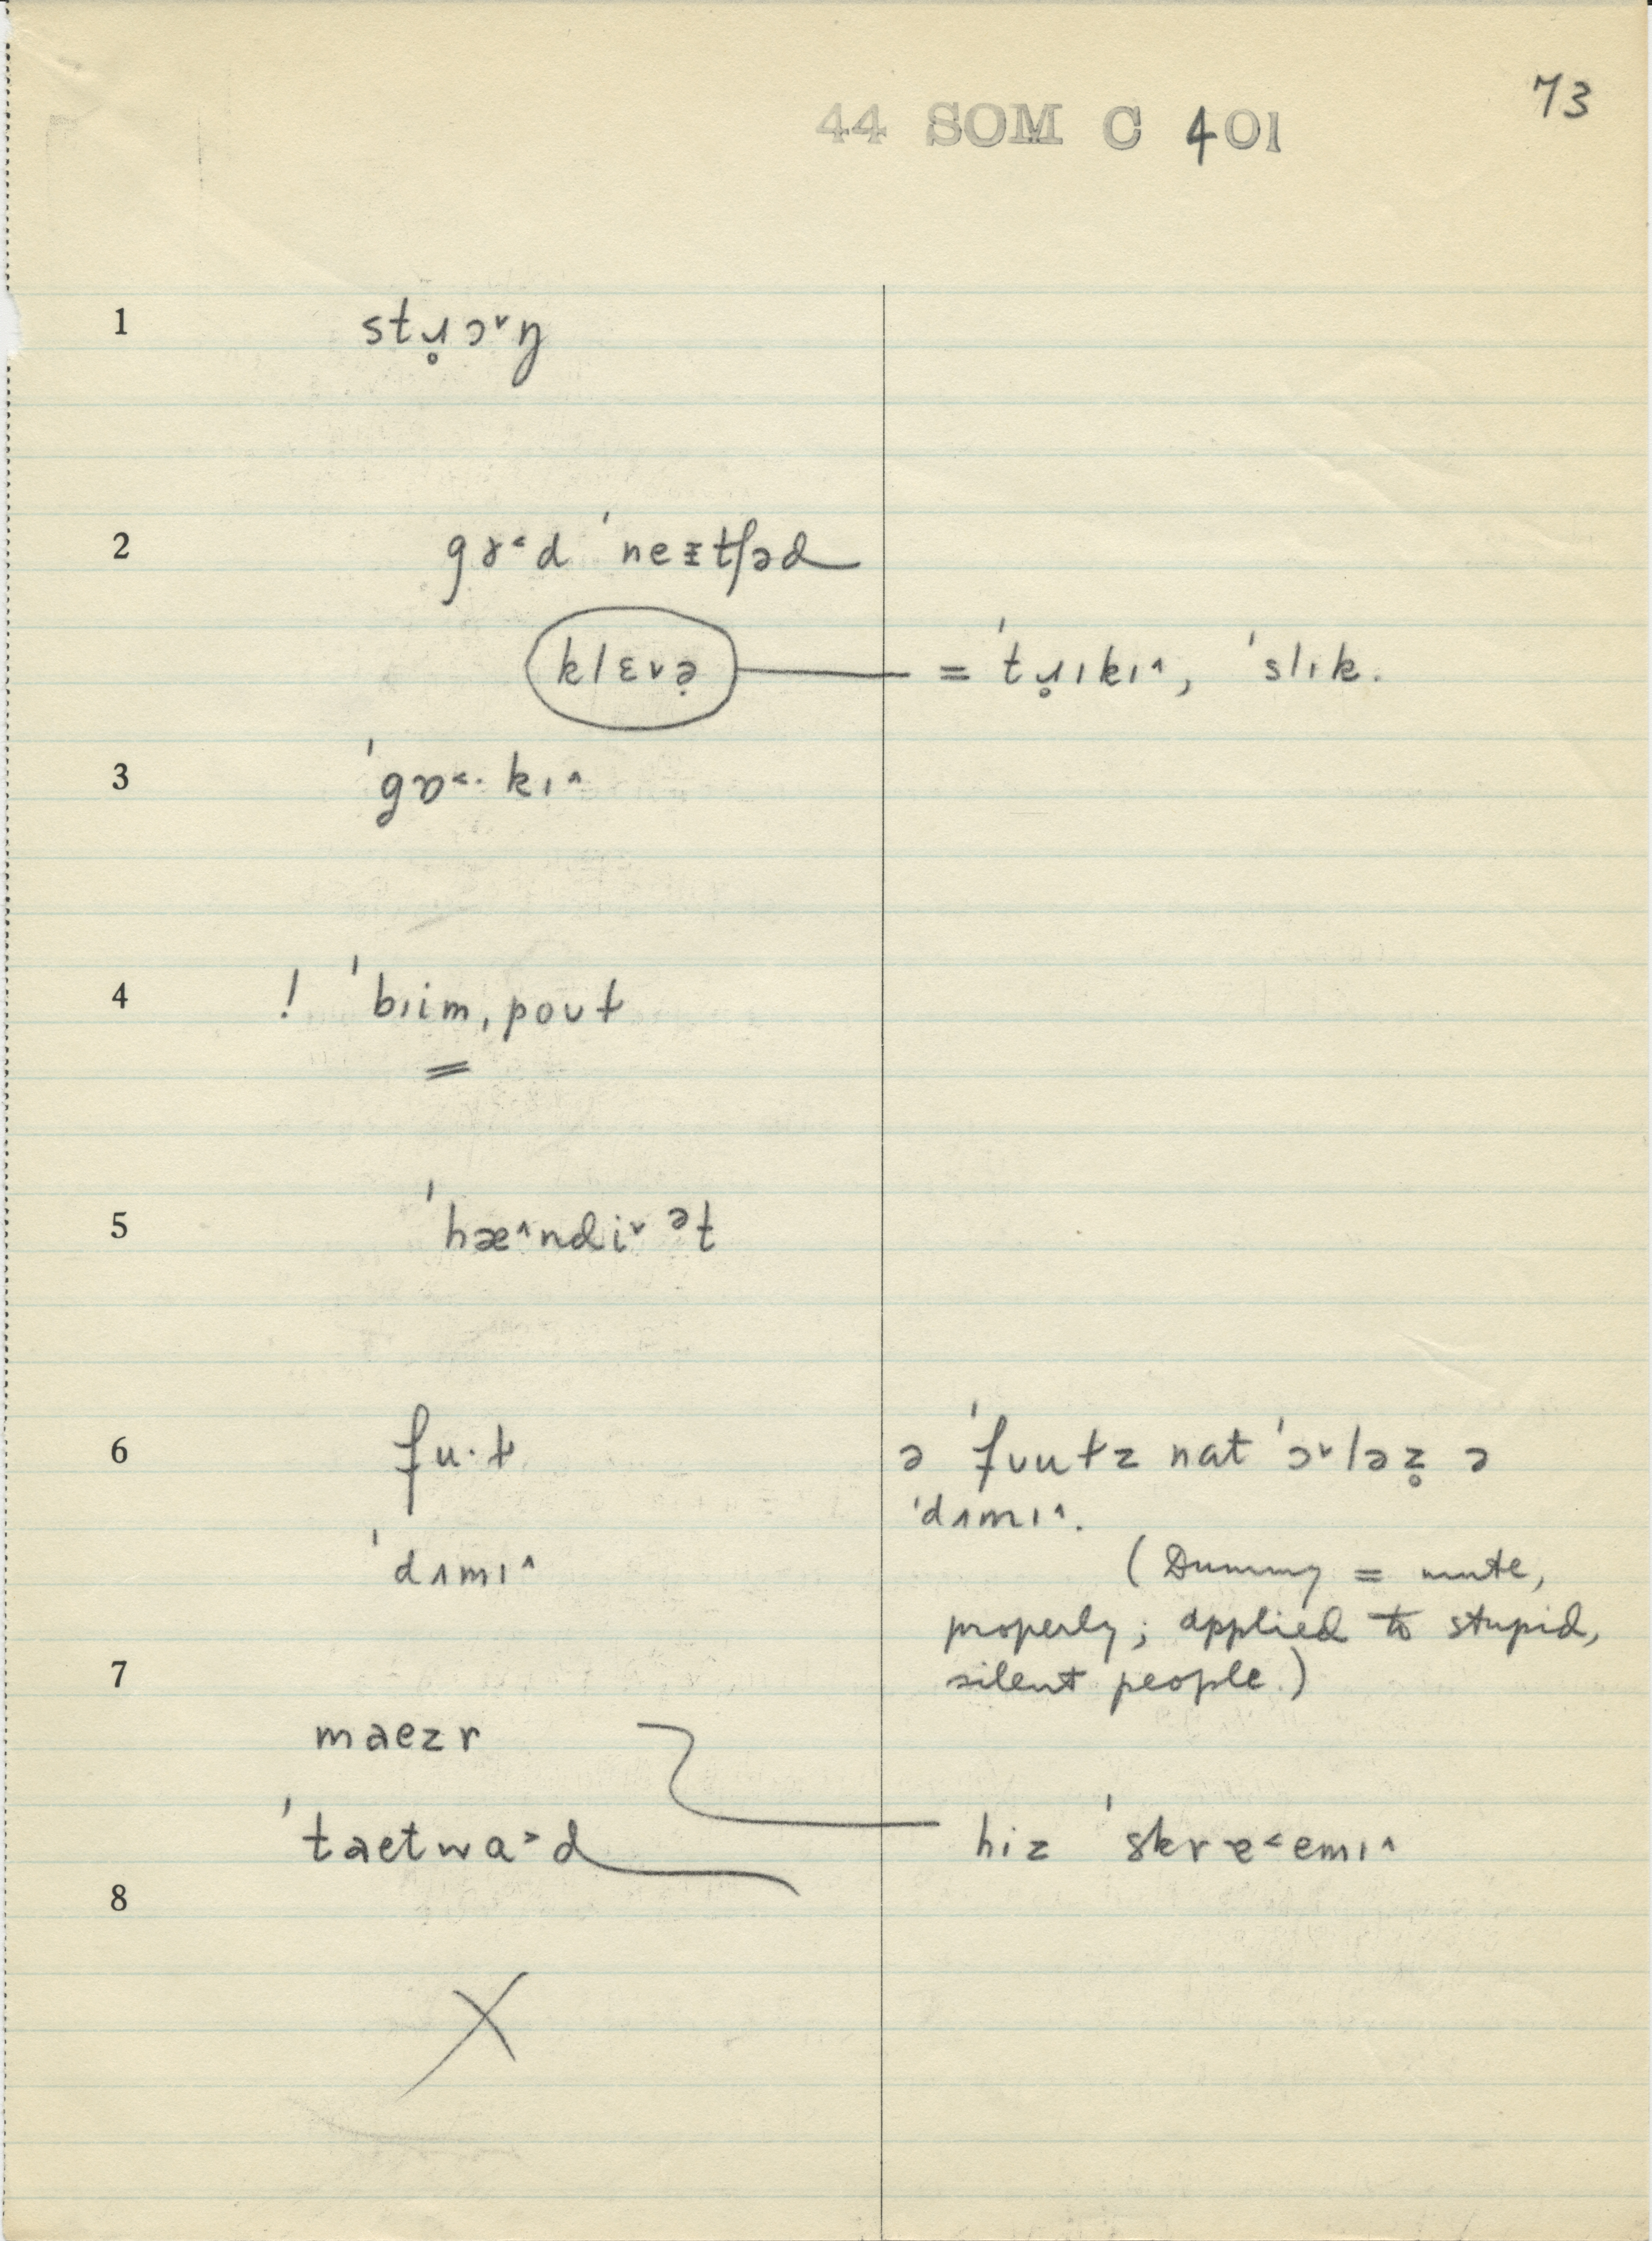 73
44 SOM C 401
1 stɹ̥ɔ˅ŋ
2 gɤ˂d ˈneɪtʃəd
klɛvə̣ = ˈtɹ̥ɪkɪ˄, ˈslɪk.
3 ˈgɒ˂· kɪ˄
4 ! ˈbɪim, poʊɫ
5 ˈhæ˄ndi˅ ᵊt
6 fu·ɫ ə ˈfʊuɫz nat ˈɔ˅ləz̥ ə
ˈdʌmɪ˄.
ˈdʌmɪ˄ (Dummy = mute,
properly; applied to stupid,
7 silent people.)
maezr
ˈtaetwa˃d hiz ˈskrɐ˂emɪ˄
8
X